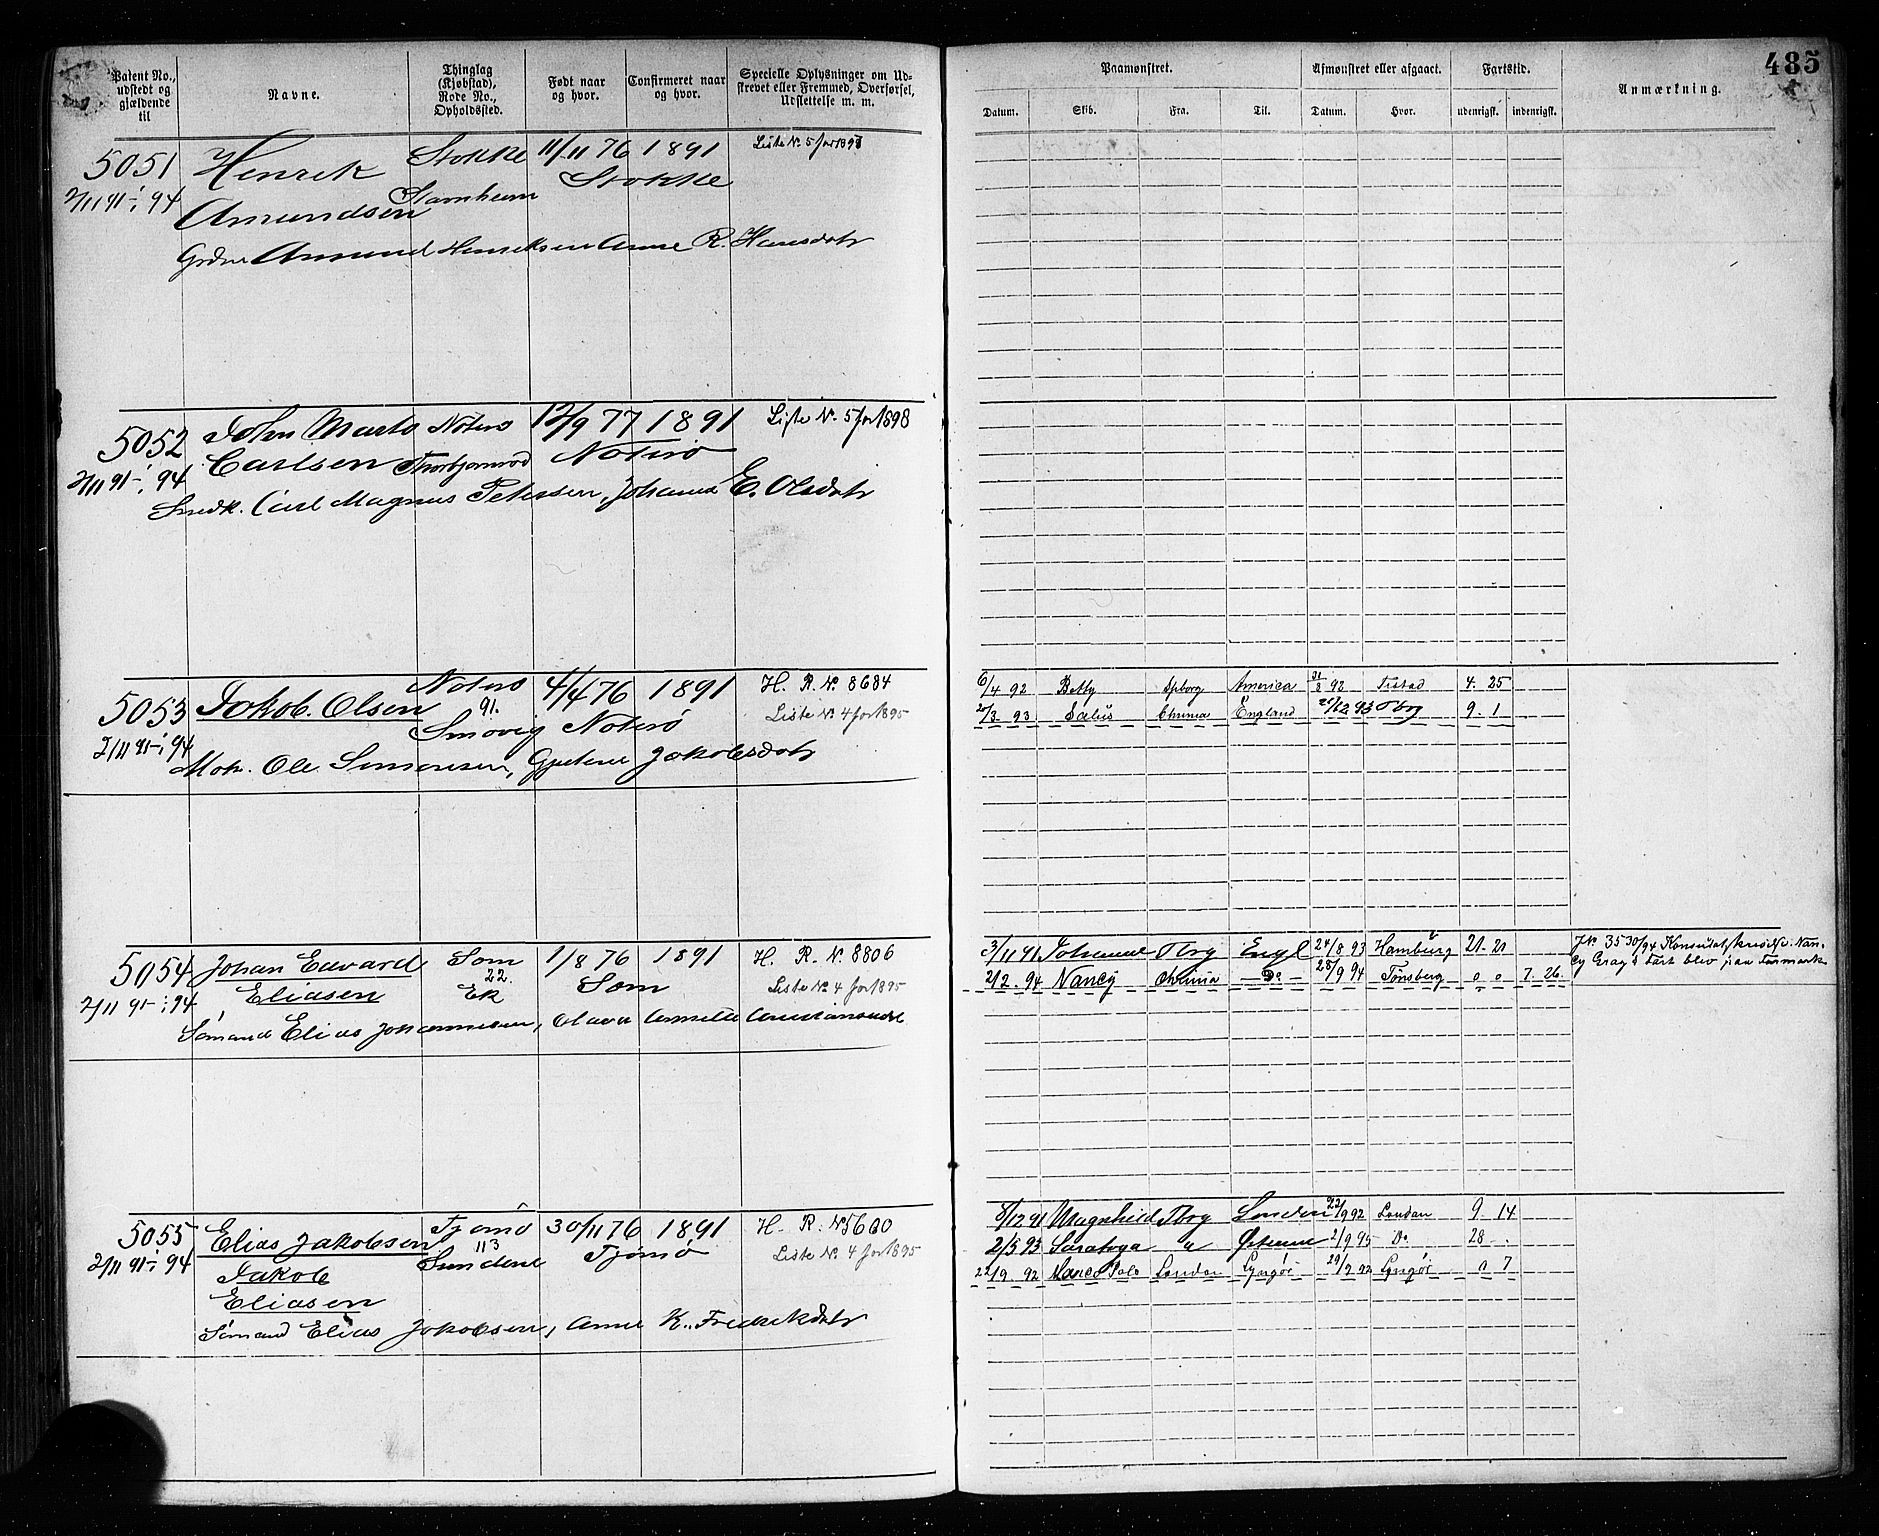 Patent No., udstedt og gjældende til
Navne.
Thinglag (Kjøbstad), Rode No., Opholdssted.
Født naar og hvor.
Confirmeret naar og hvor.
Specielle Oplysninger om Udskrevet eller Fremmed, Overførsel, Udslettelse m. m.
Paamønstret.
Afmønstret eller afgaaet.
Fartstid.
Anmærkning.
485
Datum. Skib. Fra. Til. Datum. Hvor. udenrigsk. indenrigsk.
5051 Henrik Stokke 11/11 76 1891 Liste No. 5 for 1897
2/11 91 - 94 Amundsen Stokke
Amund Henriksen Anne R. Hansdatr
5052 John Marto Noterø 12/9 77 1891 Liste No. 5 for 1898
2/11 91 - 94 Carlsen Thorbjørnrød Noterø
Snedk. Carl Magnus Petersen, Johanne E. Olsdatr
5053 Jakob Olsen Noterø 4/4 76 1891 H. R. No. 8684
91. Liste No. 4 for 1895
2/11 91 - 94 Smovig Noterø
Ole Simonsen, Jakobsdatr
6/4 92 Betty America 31/8 92 4. 25
20/3 93 Salus Chrinia England 93 Tbrg 9. 1
5054 Johan Edvard Som 1/8 76 1891 H. R. No. 8806
22. Liste No. 4 for 1895
2/11 91 - 94 Eliasen Ek Som
Sømand Elias Johannesen,
3/11 91 Johanne Tbrg Engl 24/8 93 Hamburg 21. 21
2/2. 94 Nancy Chrinia Do 28/9 94 Tønsberg 0 0 7. 26.
5055 Elias Jakobsen Tjømø 30/11 76 1891 H. R. No 5600
113 Liste No. 4 for 1895
2/11 91 - 94 Jakob Sundene Tjømø
Eliasen
Sømand Elias Jakobsen, Anne K. Fredrikdatr
8/12 91 Magnhild Tbrg London 22/9 92 London 9. 14
2/5 93 Saratoga " 2/9 95 Do 28 .
22/9. 92 London Lyngør 29/9 92 Lyngør 0 7